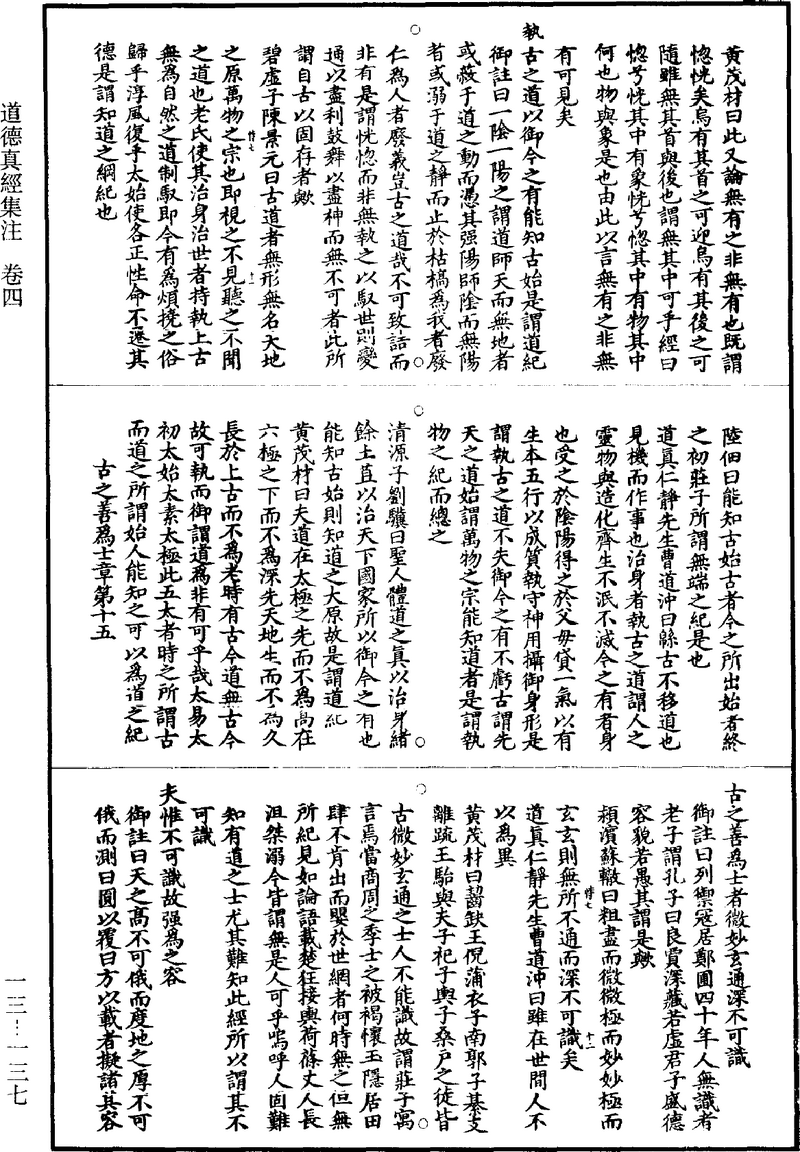 黃茂材曰此又論無有之非無有也既謂
惚恍矣烏有其首之可迎烏有其後之可
隨雖無其首與後也謂無其中可乎經曰
惚兮恍其中有象恍兮惚其中有物其中
何也物與象是也由此以言無有之非無
有可見矣
執古之道以御今之有能知古始是謂道紀
御註曰一陰一陽之謂道師天而無地者
或蔽于道之動而憑其强陽師陰而無陽
者或溺于道之靜而止於枯槁為我者廢
仁為人者廢義豈古之道哉不可致詰而
非有是謂恍惚而非無執之以馭世則變
通以盡利鼓舞以盡神而無不可者此所
謂自古以固存者歟
碧虛子陳景元曰古道者無形無名天地
之原萬物之宗也即視之不見聽之不聞
之道也老氏使其治身治世者持執上古
無為自然之道制馭即今有為煩撓之俗
歸乎淳風復乎太始使各正性命不遷其
德是謂知道之綱紀也
陸佃曰能知古始古者今之所出始者終
之初莊子所謂無端之紀是也
道真仁靜先生曹道沖曰緜古不移道也
見機而作事也治身者執古之道謂人之
靈物與造化齊生不泯不滅今之有者身
也受之於陰陽得之於父母貸一氣以有
生本五行以成質執守神用攝御身形是
謂執古之道不失御今之有不虧古謂先
天之道始謂萬物之宗能知道者是謂執
物之紀而總之
清源子劉驥曰聖人體道之真以治身緒
餘土苴以治天下國家所以御今之有也
能知古始則知道之大原故是謂道紀
黃茂材曰夫道在太極之先而不為高在
六極之下而不為深先天地生而不為久
長於上古而不為老時有古今道無古今
故可執而御謂道為非有可乎哉太易太
初太始太素太極此五太者時之所謂古
而道之所謂始人能知之可以為道之紀
古之善為士章第十五
古之善為士者微妙玄通深不可識
御註曰列禦寇居鄭圃四十年人無識者
老子謂孔子曰良賈深藏若虛君子盛德
容貌若愚其謂是歟
潁濱蘇轍曰粗盡而微微極而妙妙極而
玄玄則無所不通而深不可識矣
道真仁靜先生曹道沖曰雖在世間人不
以為異
黃茂材曰齧缺王倪蒲衣子南郭子綦支
離疏王駘與夫子祀子輿子桑戶之徒皆
古微妙玄通之士人不能識故謂莊子寓
言焉當商周之季士之被褐懷玉隱居田
肆不肯出而嬰於世網者何時無之但無
所紀見如論語載楚狂接輿荷蓧丈人長
沮桀溺今皆謂無是人可乎嗚呼人固難
知有道之士尤其難知此經所以謂其不
可識
夫惟不可識故强為之容
御註曰天之高不可俄而度地之厚不可
俄而測曰圓以覆曰方以載者擬諸其容
道德真經集注 卷四
一三—一三七